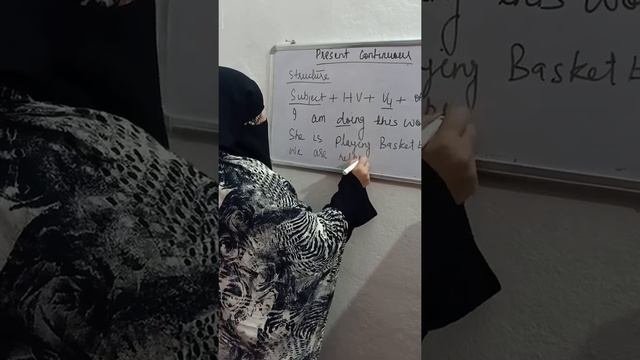 Present Continuous
Structure
Subject + HV + V4 +
I am doing this
She is Playing Basket
we are